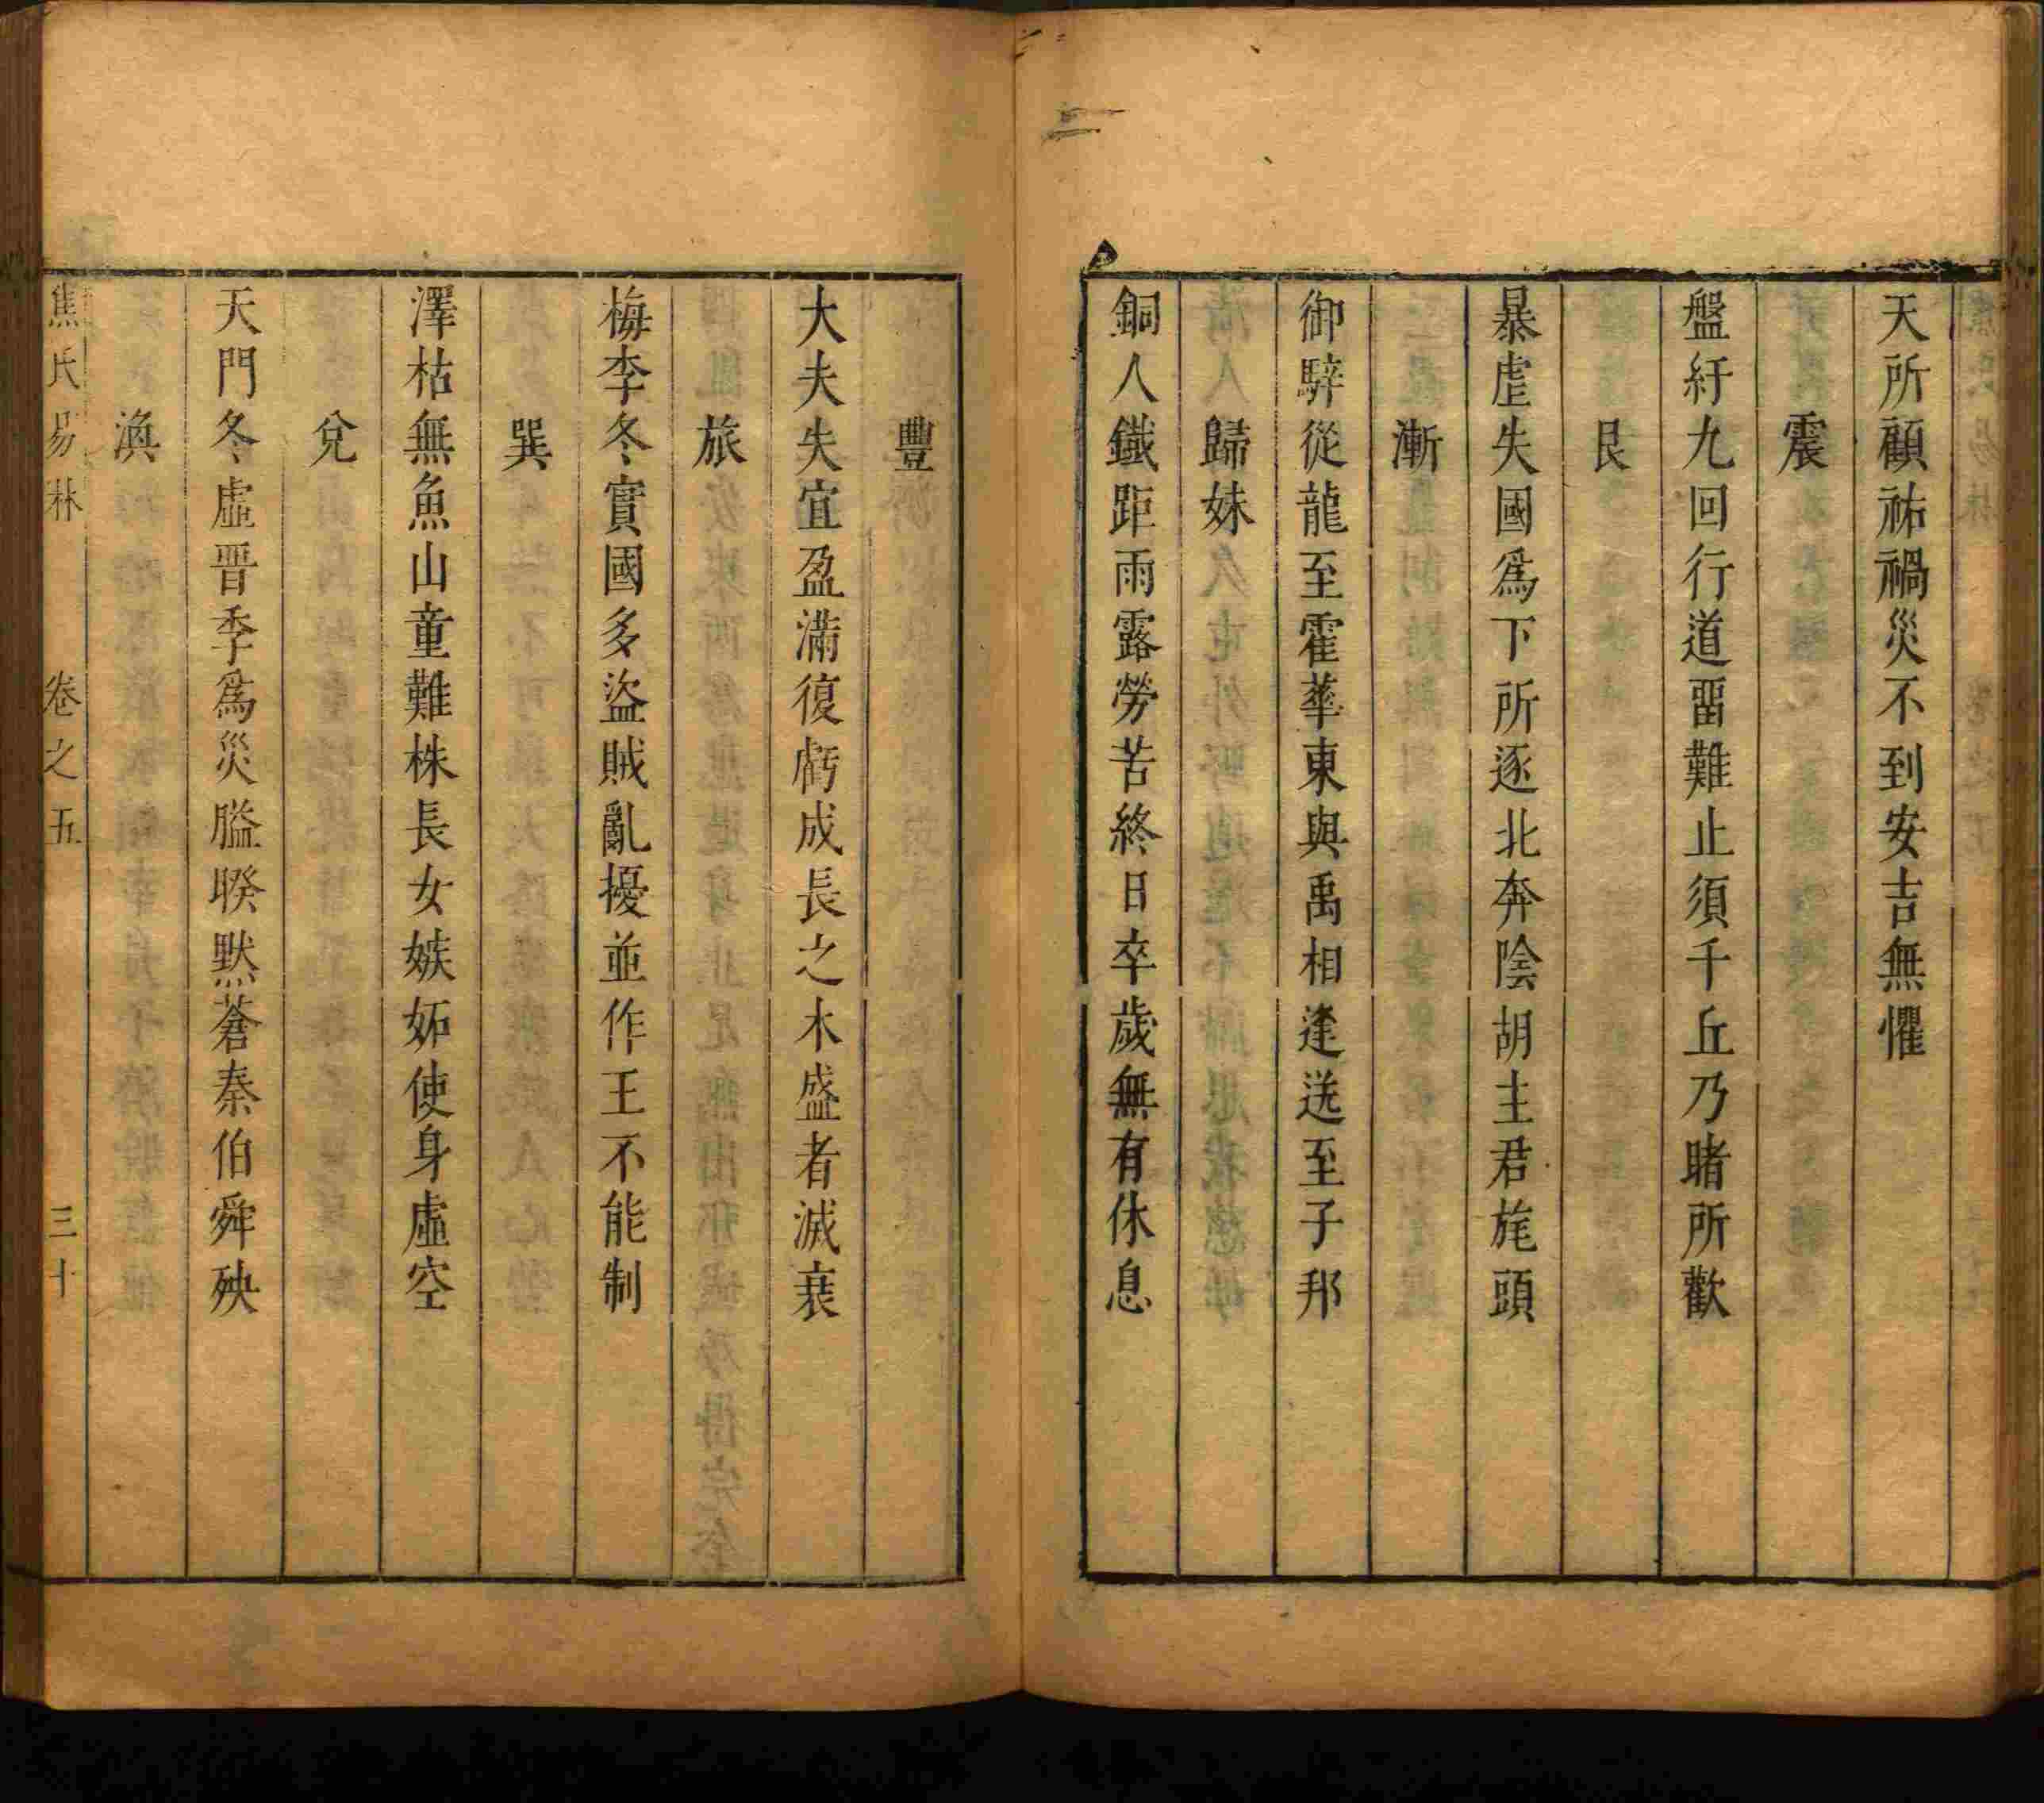 天所顧祐禍災不到安吉無懼
震
盤紆九回行道畱難止須千丘乃睹所歡
艮
暴虐失國爲下所逐北奔陰胡主君旄頭
漸
御騂從龍至霍華東與禹相逢送至子邦
歸妹
銅人鐵距雨露勞苦終日卒歲無有休息
豐
大夫失宜盈滿復虧成長之木盛者滅衰
旅
梅李冬實國多盜賊亂擾並作王不能制
巽
澤枯無魚山童難株長女嫉妬使身虛空
兌
天門冬虛晋季爲災膉睽黙蒼秦伯舜殃
渙
焦氏易林 卷之五 三十